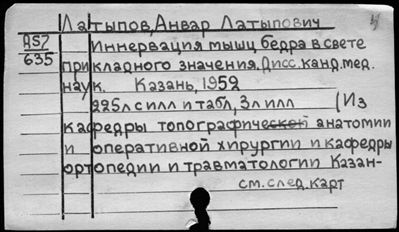 Латыпов, Анвар Латыпович
Д57
635
Иннервация мышц бедра в свете
прикладного значения. Дисс. канд. мед.
наук. Казань, 1959
225л с илл и табл, 3л илл (Из
кафедры топографической анатомии
и оперативной хирургии и кафедры
ортопедии и травматологии Казан-
см. след. карт